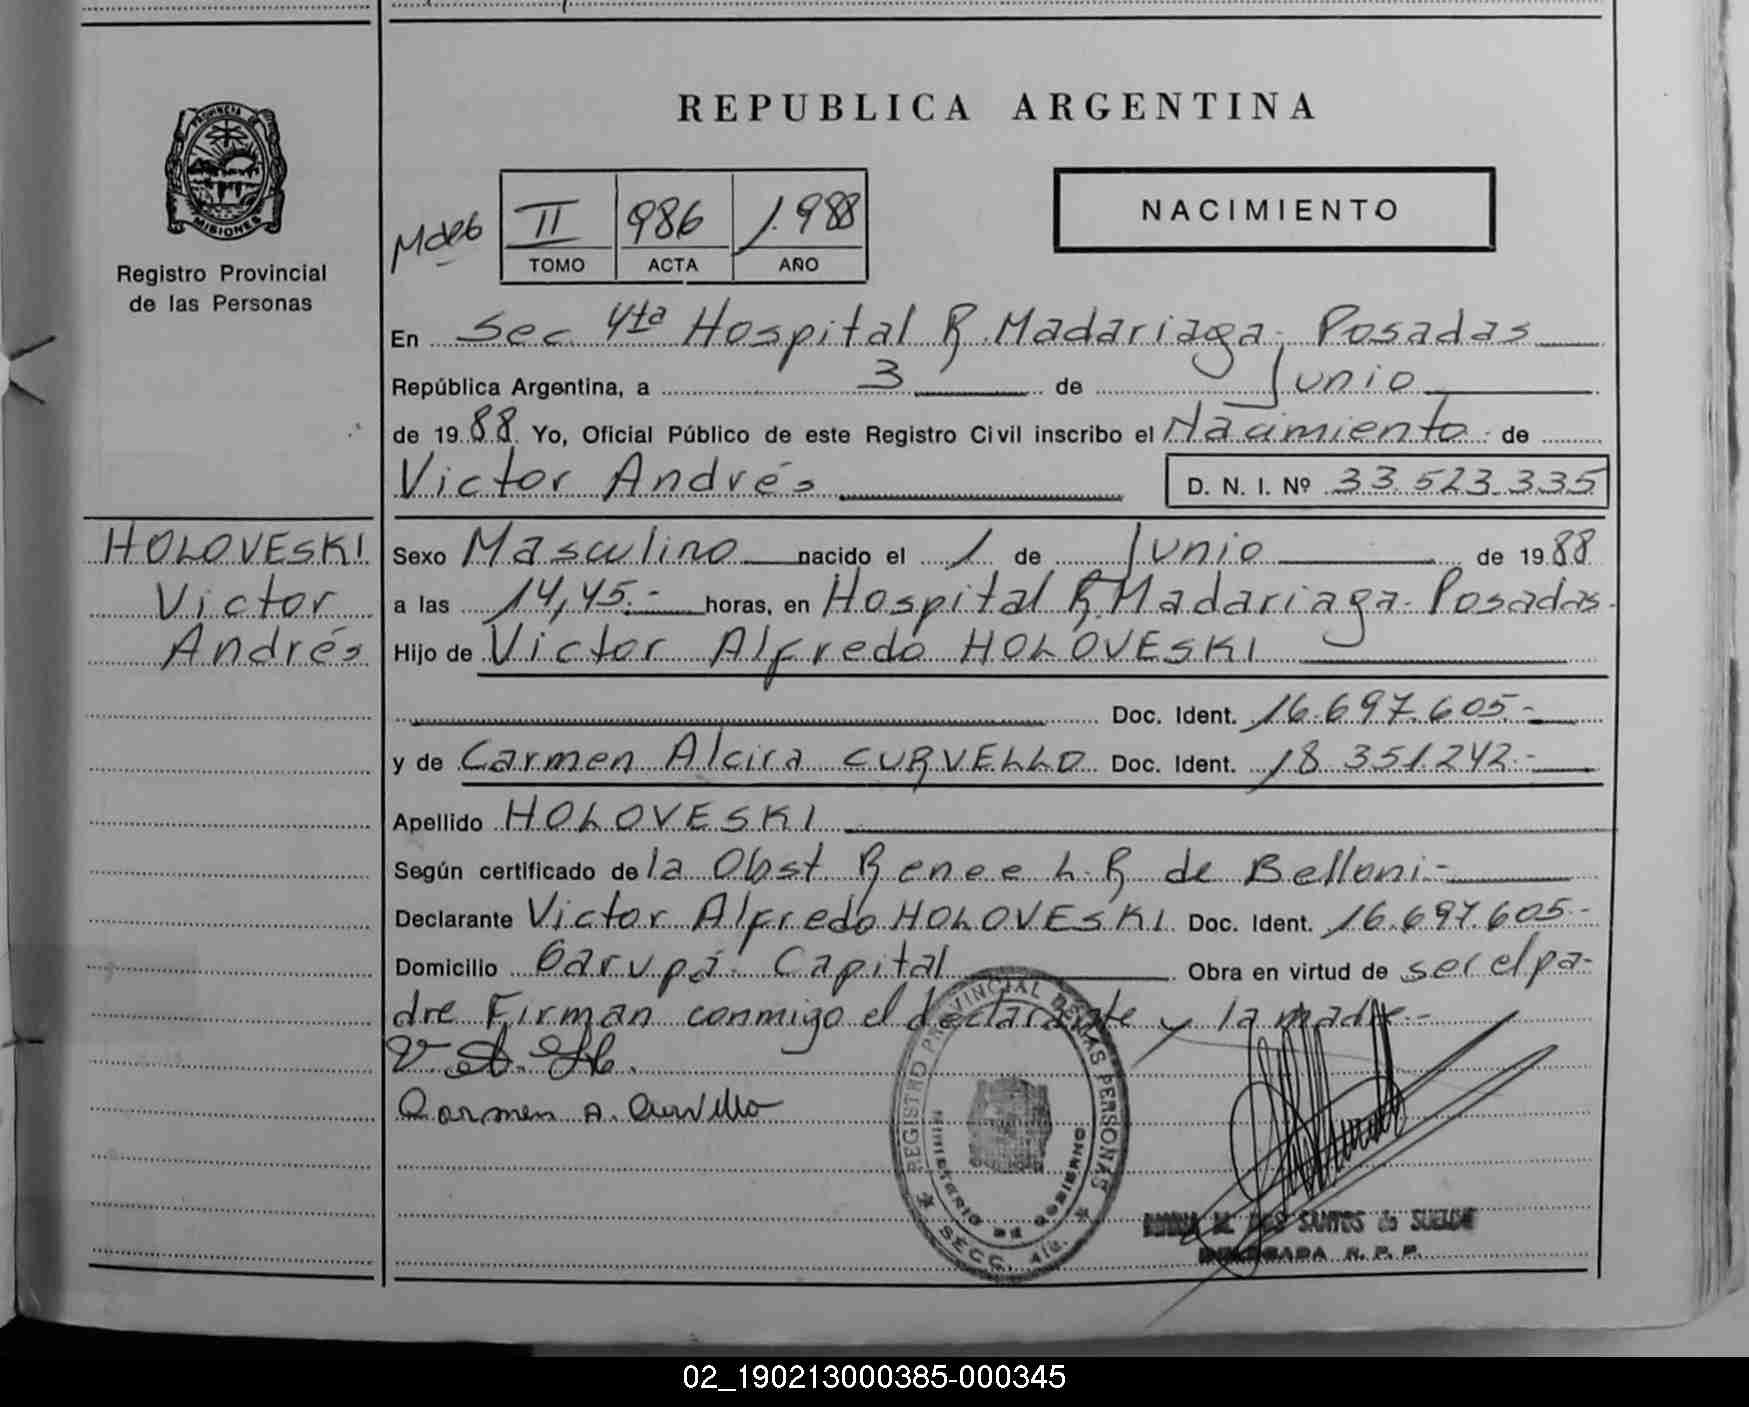 REPUBLICA ARGENTINA
PROVINCIA DE
MISIONES
Registro Provincial
de las Personas
II 986 1.988
TOMO ACTA AÑO
NACIMIENTO
En Sec. 4ta Hospital R. Madariaga- Posadas
República Argentina, a 3 de Junio
de 1988 Yo, Oficial Público de este Registro Civil inscribo el Nacimiento de
Victor Andrés D. N. I. Nº 33.523.335
HOLOVESKI
Victor
Andrés
Sexo Masculino nacido el 1 de Junio de 1988
a las 14,45.- horas, en Hospital R. Madariaga- Posadas-
Hijo de Victor Alfredo HOLOVESKI
Doc. Ident. 16.697.605.-
y de Carmen Alcira CURVELLO Doc. Ident. 18.351.242.-
Apellido HOLOVESKI
Según certificado de la Obst. Renee L. R. de Belloni-
Declarante Victor Alfredo HOLOVESKI Doc. Ident. 16.697.605.-
Domicilio Garupá- Capital Obra en virtud de ser el pa-
dre Firman conmigo el declarante y la madre.-
V. A. H.
Carmen A. Curvello
REGISTRO PROVINCIAL DE LAS PERSONAS
MINISTERIO DE GOBIERNO
SECC. 4ta.
DOS SANTOS de
DELEGADA R. P. P.
02_190213000385-000345